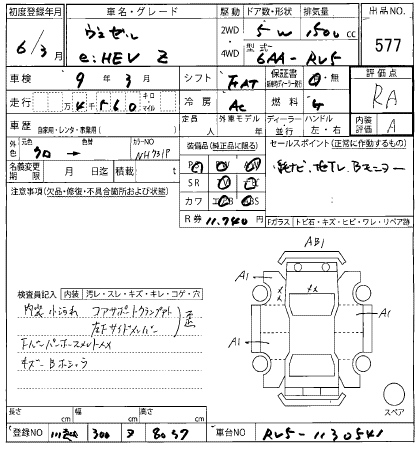 初度登録年月
車名・グレード
駆動 ドア数・形状 排気量
出品NO.
6/3月
ヴェゼル
e:HEV Z
2WD 4WD
5W
1500cc
型式 6AA-RV5
577
車検 9年3月
シフト FAT
保証書 有・無
評価点
RA
走行 万4千560 キロ・マイル
冷房 AC
燃料 G
車歴 自家用・レンタ・事業用( )
定員 人
外車年式
ディーラー・並行
ハンドル 左・右
内装評価 A
外色 元色 クロ→ 色替
カラーNO NH731P
装備品(純正品に限る)
セールスポイント(正常に作動するもの)
純ナビ、地デジTV、Bモニター
名義変更期限 月 日迄 積載 t
注意事項(欠品・修復・不具合箇所および状態)
SR
カワ
R券 11.740円
Fガラス トビ石・キズ・ヒビ・ワレ・リペア跡
AB1
A1
A1
A1
検査員記入 内装 汚レ・スレ・キズ・キレ・コゲ・穴
内装小汚れ
コアサポートクランプあと
左下サイドメンバー
歪
スペア
長さ cm 幅 cm 高さ cm
登録NO
300
8057
車台NO RV5-1130541